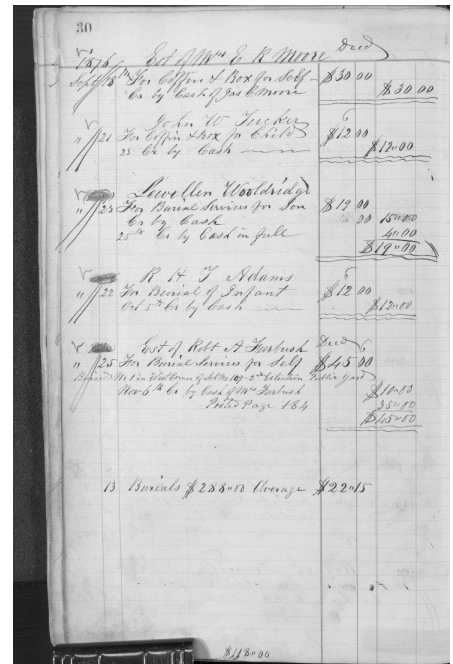 30
1876 Est of Mrs E R Moore Decd
Sept 15th For Coffin & Box for Self $30 00
Cr by Cash of Jas E Moore $30 00
John W Tucker
" 21 For Coffin & Box for Child $12 00
25 Cr by Cash $12"00
Lewellen Wooldridge
" 23 For Burial Services for Son $19 00
Cr by Cash 15"00
25th Cr by Cash in full 4"00
$19"00
R H T Adams
" 22 For Burial of Infant $12 00
Oct 5th Cr by Cash $12"00
Est of Robt A Furbush Decd
" 25 For Burial Services for Self $45 00
Buried No 1 in West Corner of Lot No 109 2nd Extention Public Yard
Nov 6th Cr by Cash of Mrs Furbush $10"00
Posted Page 184 35"00
$45"00
13 Burials $288"00 Average $22"15
$118"00